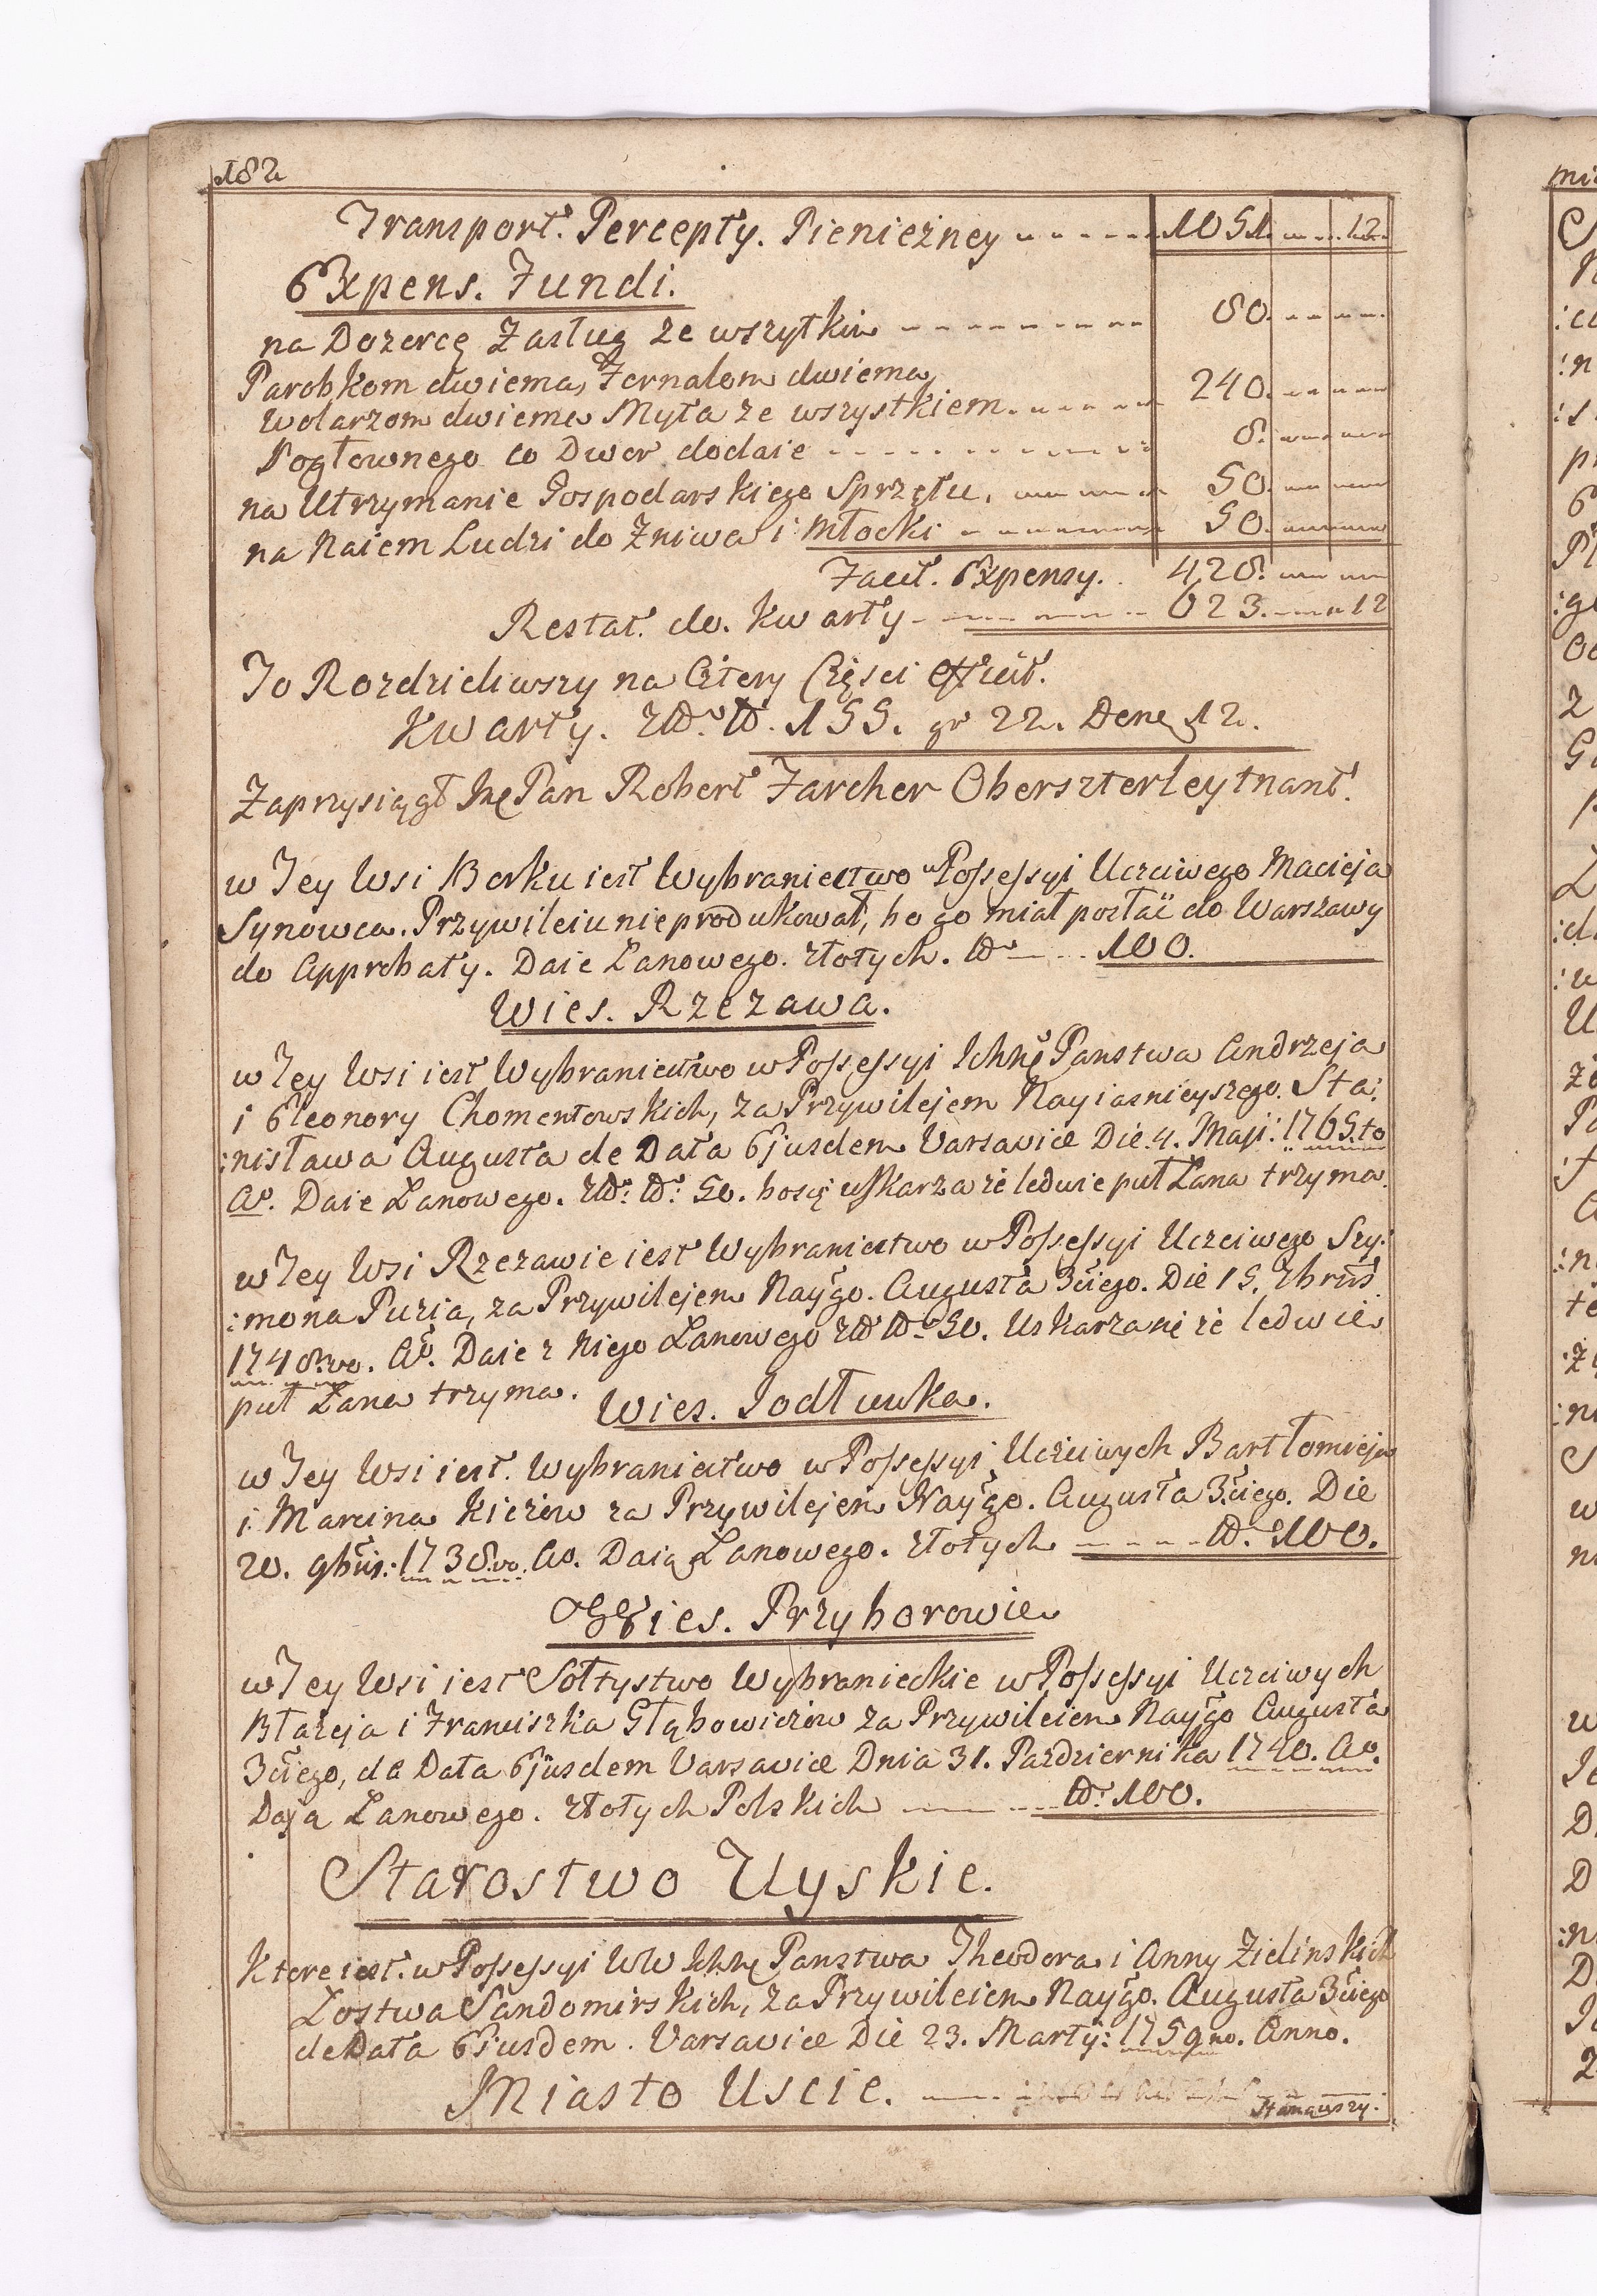 182
Transport. Percepty. Pienięźney 1051. 12.
Expens. Fundi.
na Dozorcę Zasług ze wszytkim 80.
Parobkom dwiema, Fornalom dwiema,
Wolarzom dwiema Myta ze wszystkiem. 240.
Pogłownego co Dwor dodaie 8.
na Utrzymanie Gospodarskiego Sprzętu. 50.
na Naiem Ludzi do Zniwa i Młocki 50.
Facit. Expensy. 428.
Restat. do. Kwarty 623. 12
To Rozdzieliwszy na Cztery Częsci Efficit.
Kwarty. 155. gr 22. Dene 12.
Zaprzysiągł Pan Robert Farcher Oberszterleytnant.
w Tey Wsi Borku iest Wybraniectwo w Possessyi Uczciwego Macieja
Synowca. Przywileiu nie produkował, bo go miał posłać do Warszawy
do Approbaty. Daie Łanowego. złotych. 100.
Wies. Rzezawa.
w Tey Wsi iest Wybraniectwo w Possessyi Ichmę Panstwa Andrzeja
i Eleonory Chomentowskich, za Przywilejem Nayiasnieyszego. Sta:
:nisława Augusta de Data Ejusdem Varsaviæ Die. 4. Maji: 1765.to
Ao. Daie Łanowego. 50. bo się uskarza że ledwie puł Łana trzyma.
w Tey Wsi Rzezawie iest Wybraniectwo w Possessyi Uczciwego Szy:
:mona Puzia, za Przywilejem Naygo. Augusta 3ciego. Die 15. Xbris
1748.vo. Ao. Daie z niego Łanowego 50. Uskarza się że ledwie
puł Łana trzyma.
Wies. Jodłuwka.
w Tey Wsi iest. Wybraniectwo w Possessyi Uczciwych Bartłomieja
i Marcina Kiciow za Przywilejem Naygo. Augusta 3ciego. Die
20. 9bris: 1738.vo. Ao. Daią Łanowego. złotych 100.
Wies. Przyborowie
w Tey Wsi iest Sołtystwo Wybranieckie w Possessyi Uczciwych
Błażeja i Franciszka Głąbowiczow za Przywileiem Naygo Augusta
3ciego, de Data Ejusdem Varsaviæ Dnia 31. Pazdziernika 1740. Ao.
Dają Łanowego. złotych Polskich 100.
Starostwo Uyskie.
Ktore iest. w Possessyi WW Ichmę Panstwa Theodora i Anny Zielinskich
Łostwa Sandomirskich, za Przywileiem Naygo. Augusta 3ciego
de Data Ejusdem. Varsaviæ Die 23. Marty: 1759.no. Anno.
Miasto Uscie.